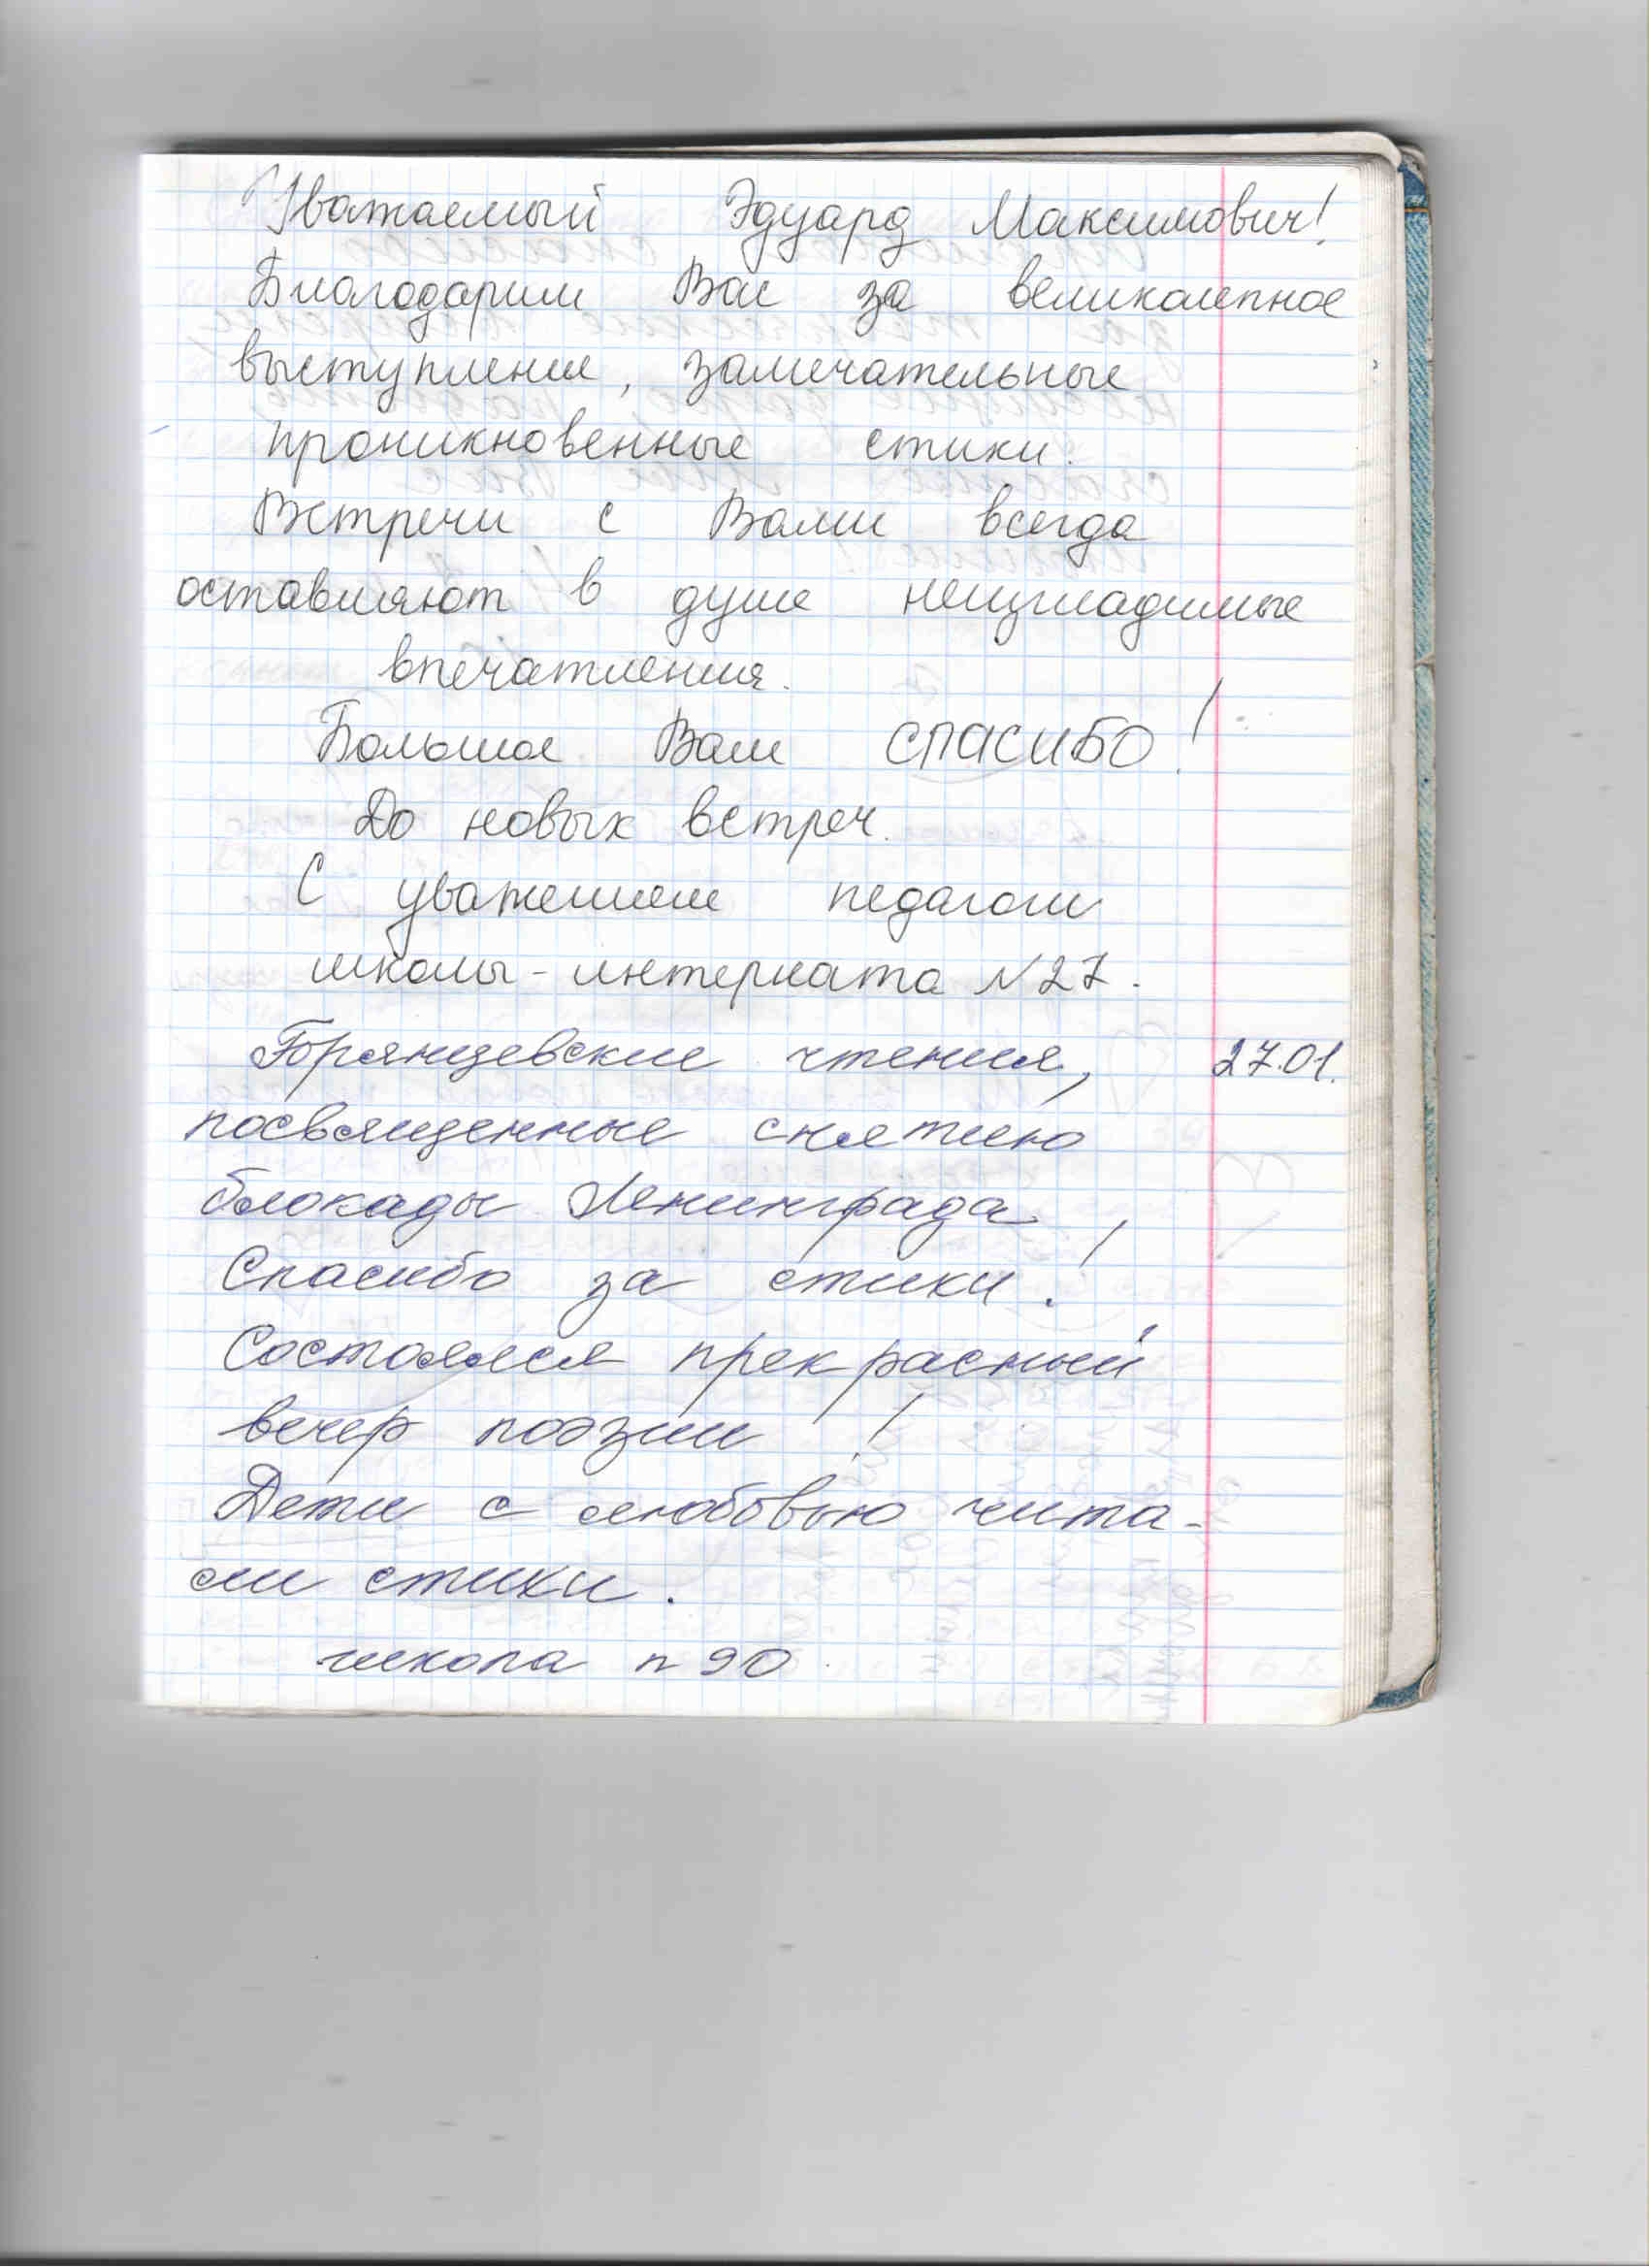 Уважаемый Эдуард Максимович!
Благодарим Вас за великолепное
выступление, замечательные
проникновенные стихи.
Встречи с Вами всегда
оставляют в душе неизгладимые
впечатления.
Большое Вам СПАСИБО!
До новых встреч.
С уважением педагоги
школы-интерната N27.
Горянцевские чтения, 27.01.
посвященные снятию
блокады Ленинграда
Спасибо за стихи!
Состоялся прекрасный
вечер поэзии!
Дети с любовью чита-
ли стихи.
школа n 90